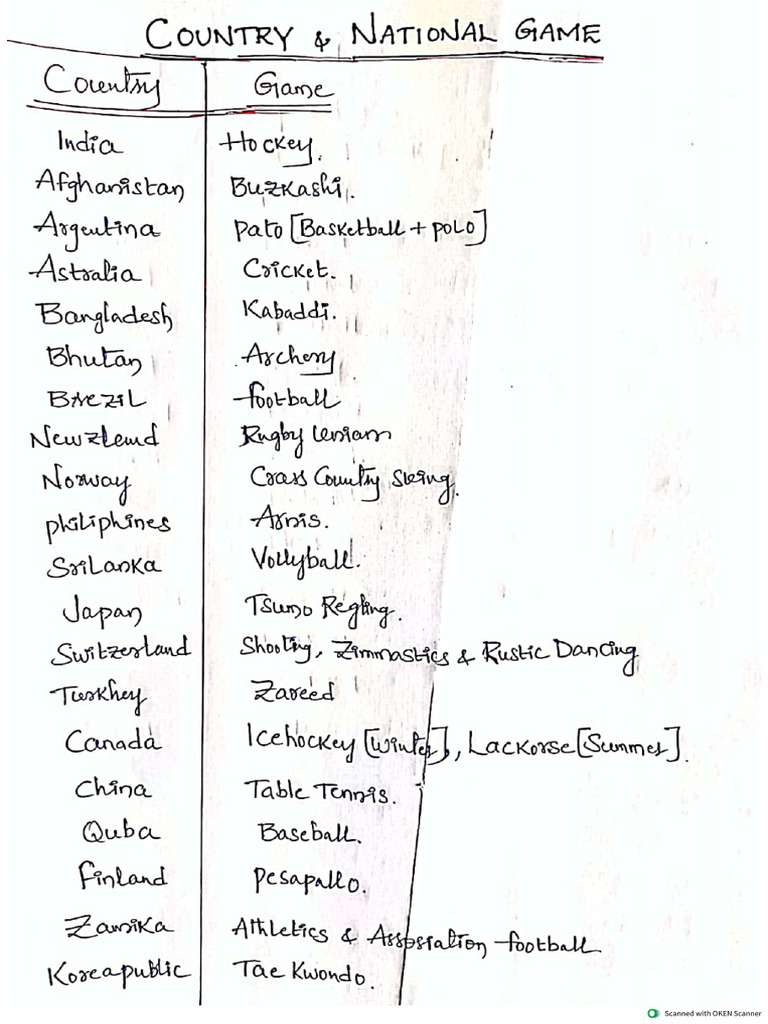 COUNTRY & NATIONAL GAME
Country Game
India Hockey.
Afghanistan Buzkashi.
Argentina Pato [Basketball + POLO]
Astralia Cricket.
Bangladesh Kabaddi.
Bhutan Archery
Brezil football
Newzlend Rugby
Norway Crass Country Skeing.
philiphines Arnis.
SriLanka Vollyball.
Japan Tsumo Regling.
Switzerland Shooting, Zimmastics & Rustic Dancing
Turkhey Zareed
Canada Icehockey [Winter], Lackorse [Summer].
China Table Tennis.
Quba Baseball.
Finland Pesapallo.
Zamika Athletics & Assosiation football
Koreapublic Tae Kwondo.
Scanned with OKEN Scanner